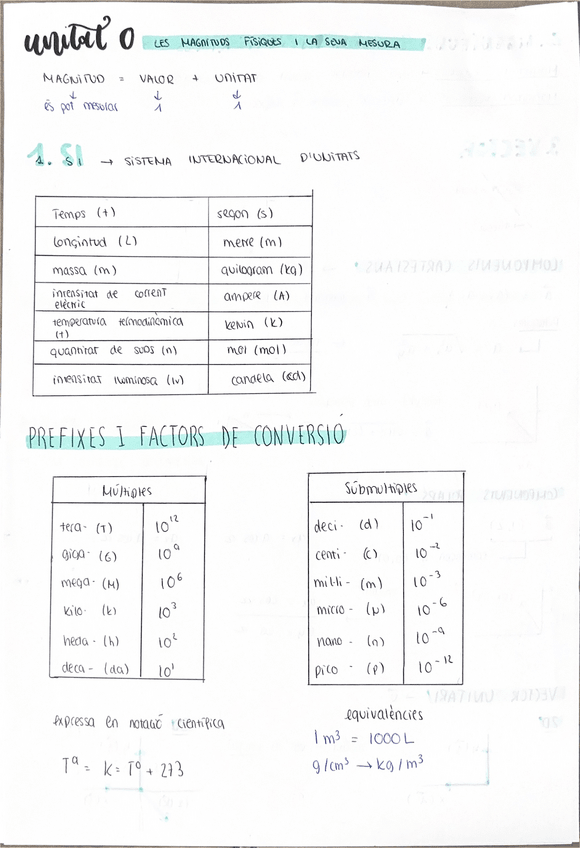 unitat 0 LES MAGNITUDS FÍSIQUES I LA SEVA MESURA
MAGNITUD = VALOR + UNITAT
↓ ↓ ↓
és pot mesurar 1 1
1. SI → SISTEMA INTERNACIONAL D'UNITATS
Temps (t) segon (s)
longintud (L) metre (m)
massa (m) quilogram (kg)
intensitat de corrent
elèctric ampere (A)
temperatura termodinàmica
(t) kelvin (k)
quantitat de subs (n) mol (mol)
intensitat lluminosa (Iv) candela (cd)
PREFIXES I FACTORS DE CONVERSIÓ
Múltiples
tera- (T) 10¹²
giga- (G) 10⁹
mega- (M) 10⁶
kilo- (k) 10³
hecta- (h) 10²
deca- (da) 10¹
Submultiples
deci- (d) 10⁻¹
centi- (c) 10⁻²
mil·li- (m) 10⁻³
micro- (μ) 10⁻⁶
nano- (n) 10⁻⁹
pico- (p) 10⁻¹²
expressa en notació científica
Tª = K = Tº + 273
equivalències
1 m³ = 1000 L
g/cm³ → kg/m³